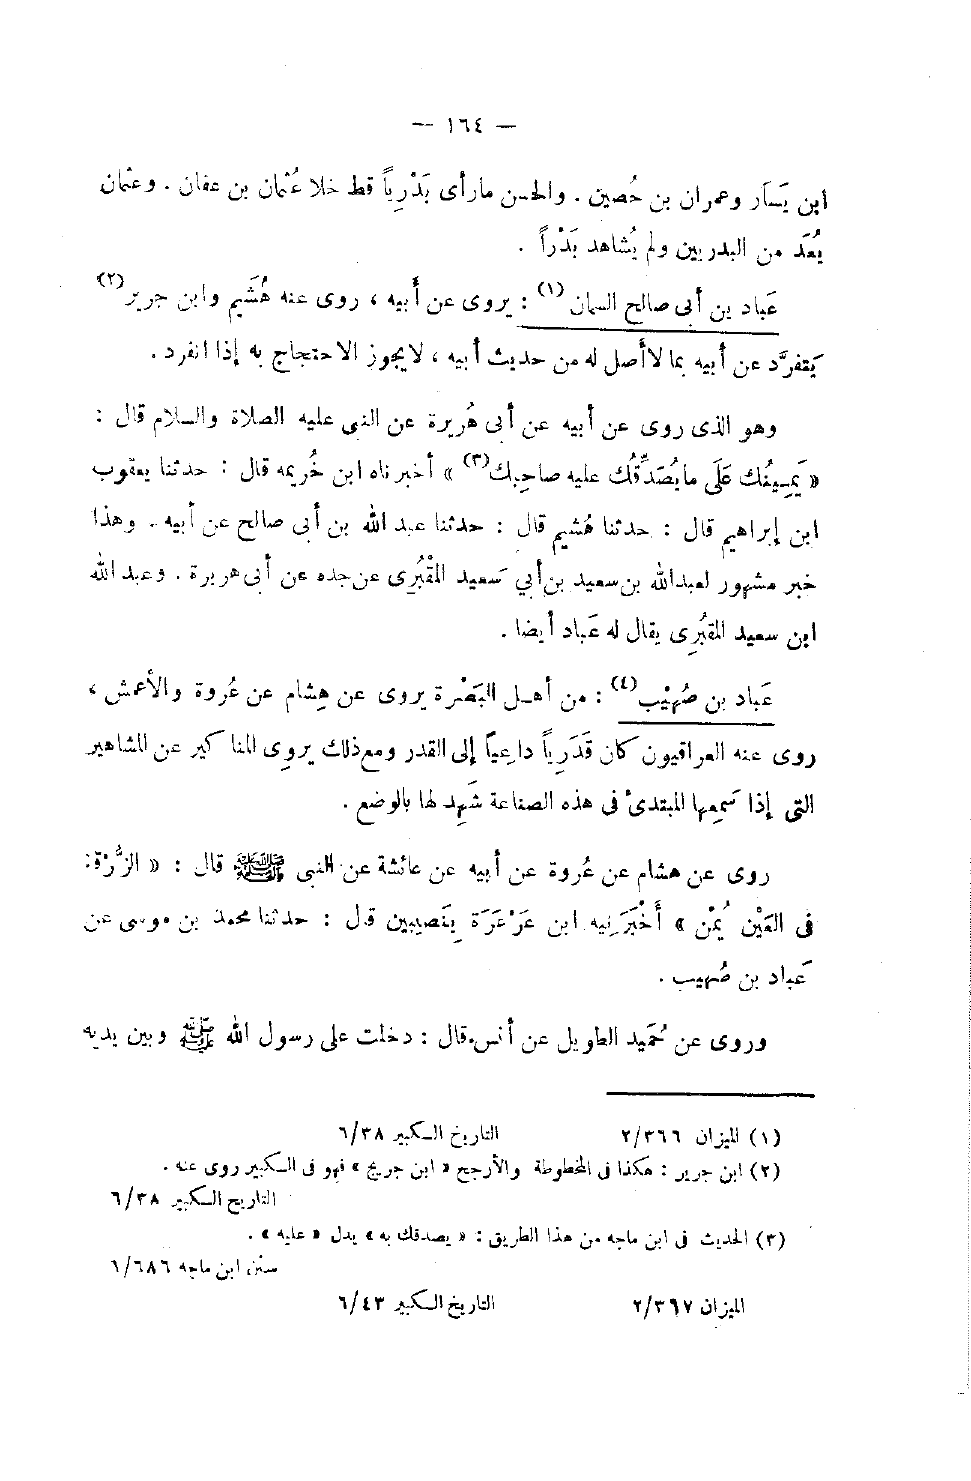 — ١٦٤ —
ابن يَسَار وعمران بن حُصين . والحسن مارأى بَدْرِياً قط خلا عُثمان بن عفان . وعثمان
يُعَد من البدريين ولم يُشاهد بَدْراً .
عَباد بن أبى صالح السمان (١) : يروى عن أبيه ، روى عنه هُشَيم وابن جرير (٢)
يَتفرَّد عن أبيه بما لاأصل له من حديث أبيه ، لايجوز الاحتجاج به إذا انفرد .
وهو الذى روى عن أبيه عن أبى هُريرة عن النبى عليه الصلاة والسلام قال :
« يَمِينُك عَلَى مايُصَدِّقُك عليه صاحبك (٣) » أخبرناه ابن خُريمه قال : حدثنا يعقوب
ابن إبراهيم قال : حدثنا هُشيم قال : حدثنا عبد الله بن أبى صالح عن أبيه . وهذا
خبر مشهور لعبدالله بن سعيد بن أبي سَعيد المَقْبُرِى عن جده عن أبى هريرة . وعبد الله
ابن سعيد المقبُرِى يقال له عَباد أيضا .
عَباد بن صُهَيْب (٤) : من أهل البَصْرة يروى عن هِشام عن عُروة والأعمش ،
روى عنه العراقيون كان قَدَرِياً داعِياً إلى القدر ومع ذلك يروِى المناكير عن المشاهير
التى إذا سَمِعها المبتدئ فى هذه الصناعة شَهِد لها بالوضع .
روى عن هشام عن عُروة عن أبيه عن عائشة عن النبى ﷺ قال : « الزُّرْقة
فى العَيْن يُمْن » أَخْبَرَنِيه ابن عَرْعَرَة بِنَصِيبين قال : حدثنا محمد بن موسى عن
عَباد بن صُهيب .
وروى عن حُمَيد الطويل عن أنس قال : دخلت على رسول الله ﷺ وبين يديه
(١) الميزان ٢/٣٦٦ التاريخ الكبير ٦/٣٨
(٢) ابن جرير : هكذا فى المخطوطة والأرجح « ابن جريج » فهو فى الكبير روى عنه .
التاريخ الكبير ٦/٣٨
(٣) الحديث فى ابن ماجه من هذا الطريق : « يصدقك به » بدل « عليه » .
سنن ابن ماجه ١/٦٨٦
الميزان ٢/٣٦٧ التاريخ الكبير ٦/٤٣